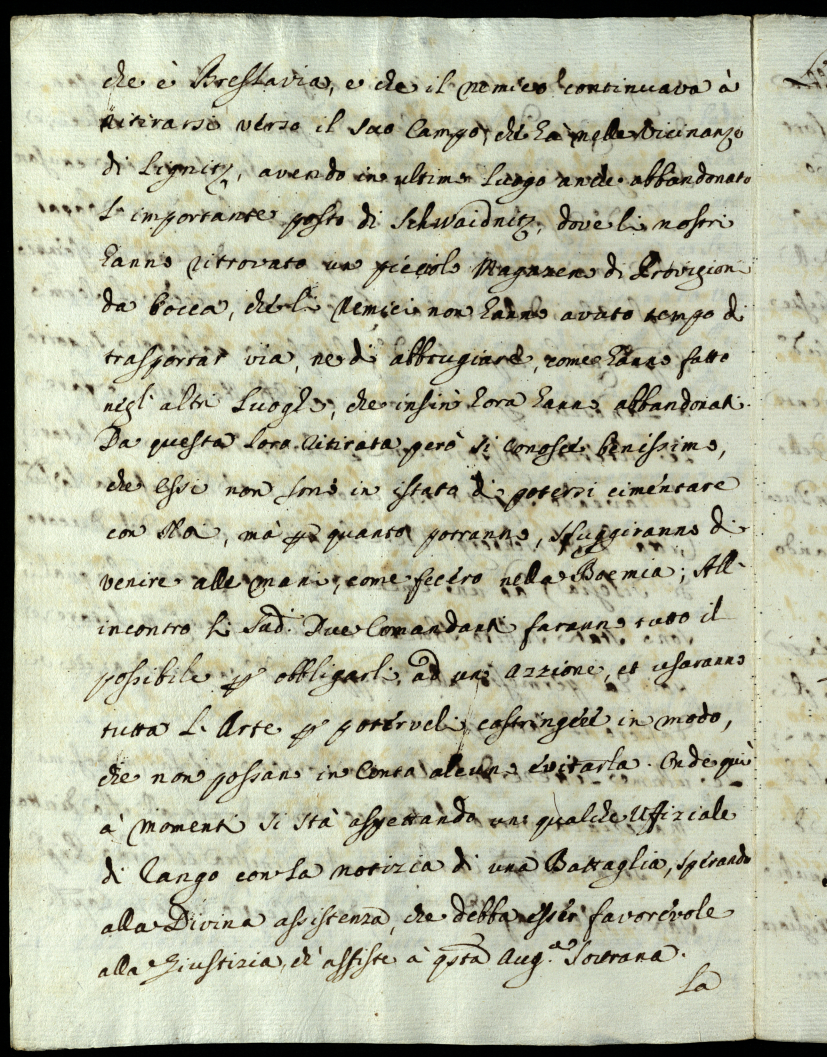 che è Breslavia, e che il nemico continuava à
ritirarsi verso il suo Campo, che hà nelle Vicinanze
di Lignitz, avendo in ultimo luogo anche abbandonato
l'importante posto di Schwaidnitz, dove li nostri
hanno ritrovato un piccolo Magazeno di Provizioni
da bocca, che li Nemici non hanno avuto tempo di
trasportar via, ne di abbrugiare, come hanno fatto
negl'altri Luoghi, che insin hora hanno abbandonati.
Da questa loro ritirata però si conosce benissimo,
che essi non sono in istato di potersi cimentare
con Noi, mà p quanto potranno, sfuggiranno di
venire alle mani, come fecero nella Boemia; All'
incontro li Sud.i Due Comandanti faranno tutto il
possibile p obbligarli ad una azzione, et usaranno
tutta l'Arte p potérveli costringere in modo,
che non possano in conto alcuno evitarla. Onde quì
a' momenti si stà aspettando un qualche Uffiziale
di rango con la notizia di una Battaglia, sperando
alla Divina assistenza, che debba esser favorevole
alla Giustizia, ch'assiste à qsta Aug.a Sovrana.
La